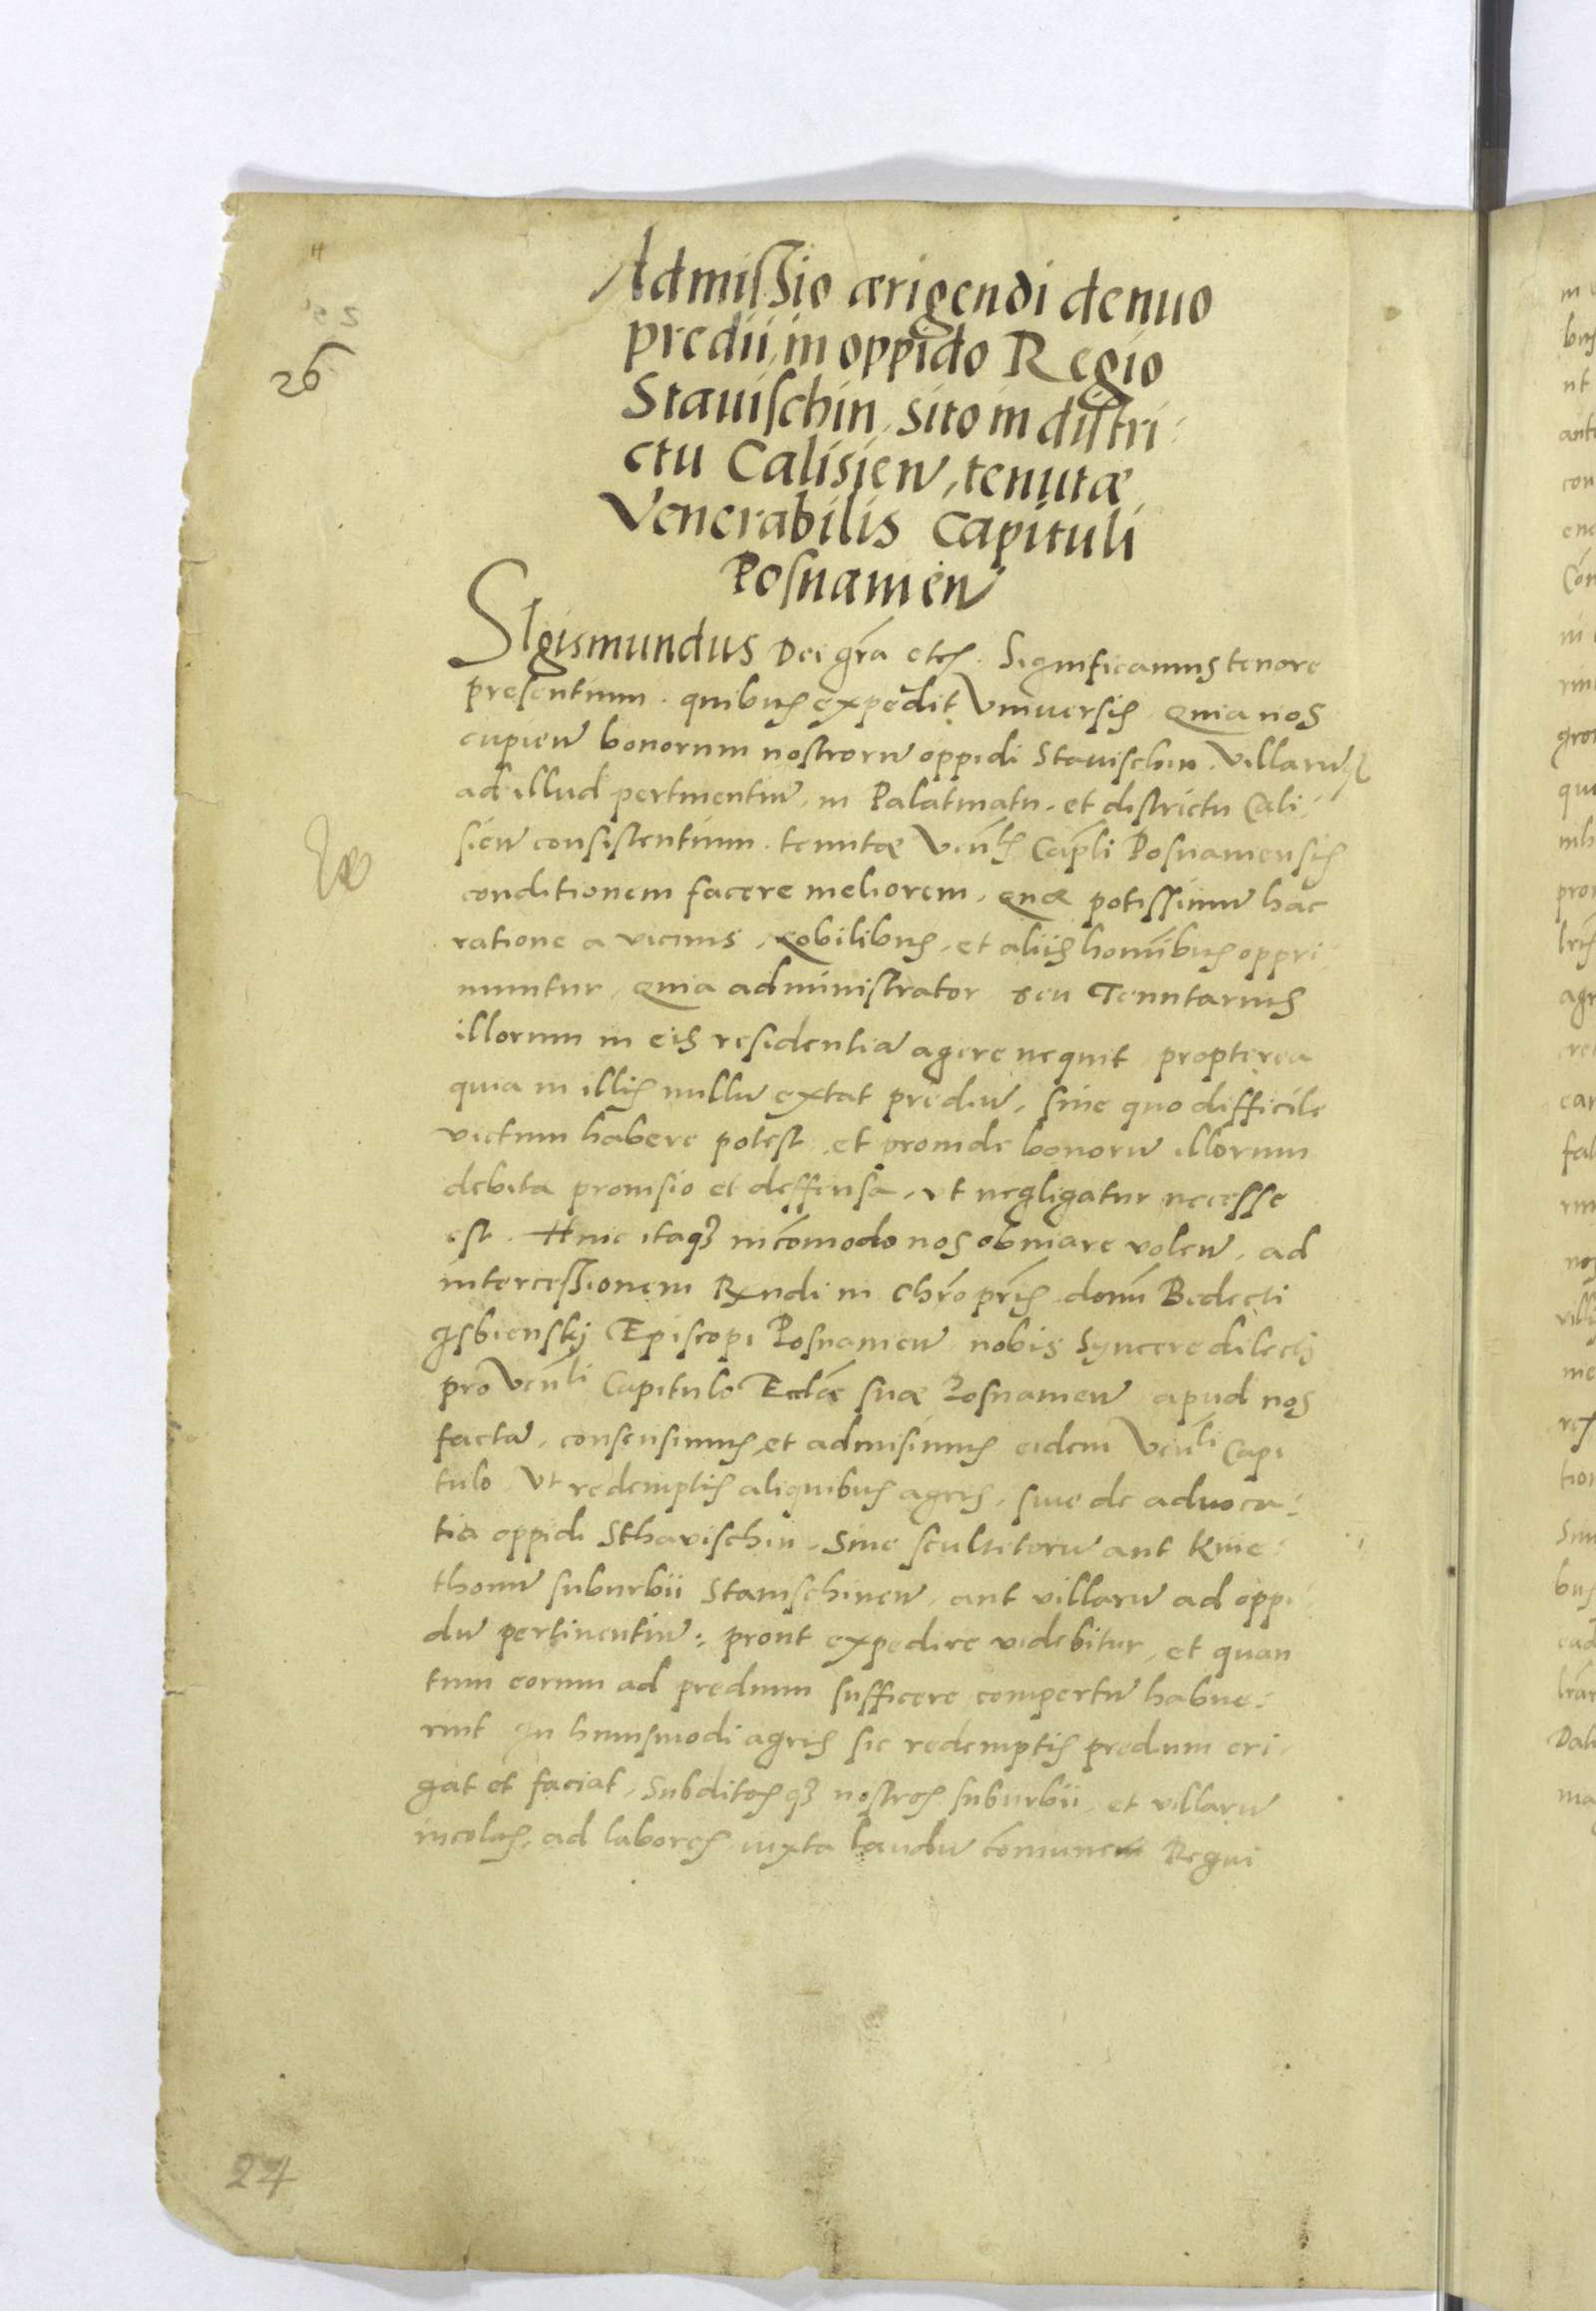 Admissio ærigendi denuo
predii, in oppido Regio
Stauischin, sito in distri:
ctu Calisien, tenutæ
Venerabilis Capituli
Posnamen
26
SIgismundus Dei gra etc. Significamus tenore
presentium. quibus expedit Vniuersis, Quia nos
cupien bonorum nostroru oppidi Stauischin. Villaruq
ad illud pertinentiu, in Palatinatu. et districtu Cali:
sien consistentium. tenutæ Venlis Capli Posnamensis
conditionem facere meliorem, quæ potissimu hac
ratione a vicinis, Nobilibus, et aliis hominibus oppri
muntur, Quia administrator seu Tenutarius
illorum in eis residentia agere nequit propterea
quia in illis nullu extat prediu, sine quo difficile
victum habere potest, et proinde bonoru illorum
debita prouisio et deffensa, vt negligatur necesse
est. Huic itaq3 incomodo nos obuiare volen, ad
intercessionem Rndi in Chro pris domi Bedecti
Isbienskj Episcopi Posnamen nobis syncere dilecti
pro Venli Capitulo Ecclæ suæ Posnamen apud nos
facta, consensimus, et admisimus eidem Venli Capi
tulo, Vt redemptis aliquibus agris, siue de aduoca:
tia oppidi Sthavischin, Siue scultetoru aut Kme:
thonu suburbii Stauischinen, aut villaru ad oppi
du pertinentiu: prout expedire videbitur, et quan
tum eorum ad predium sufficere compertu habue:
rint In huiusmodi agris sic redemptis predium eri:
gat et faciat, Subditosq3 nostros suburbii, et villaru
incolas, ad labores iuxta laudu comune Regni
24